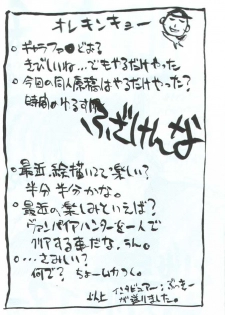 オレキンキョー
きびしいね…でもやるだけやった
○今回の同人原稿はやるだけやった?
時間のゆるす
ふざけんな
○最近、絵描いてて楽しい?
半分半分かな。
○最近の楽しみといえば?
ヴァンパイアハンターを一人で
クリアする事だな、うん。
○…さみしい?
何で?ちょームカつく。
以上
インタビュアー:
が送りました。